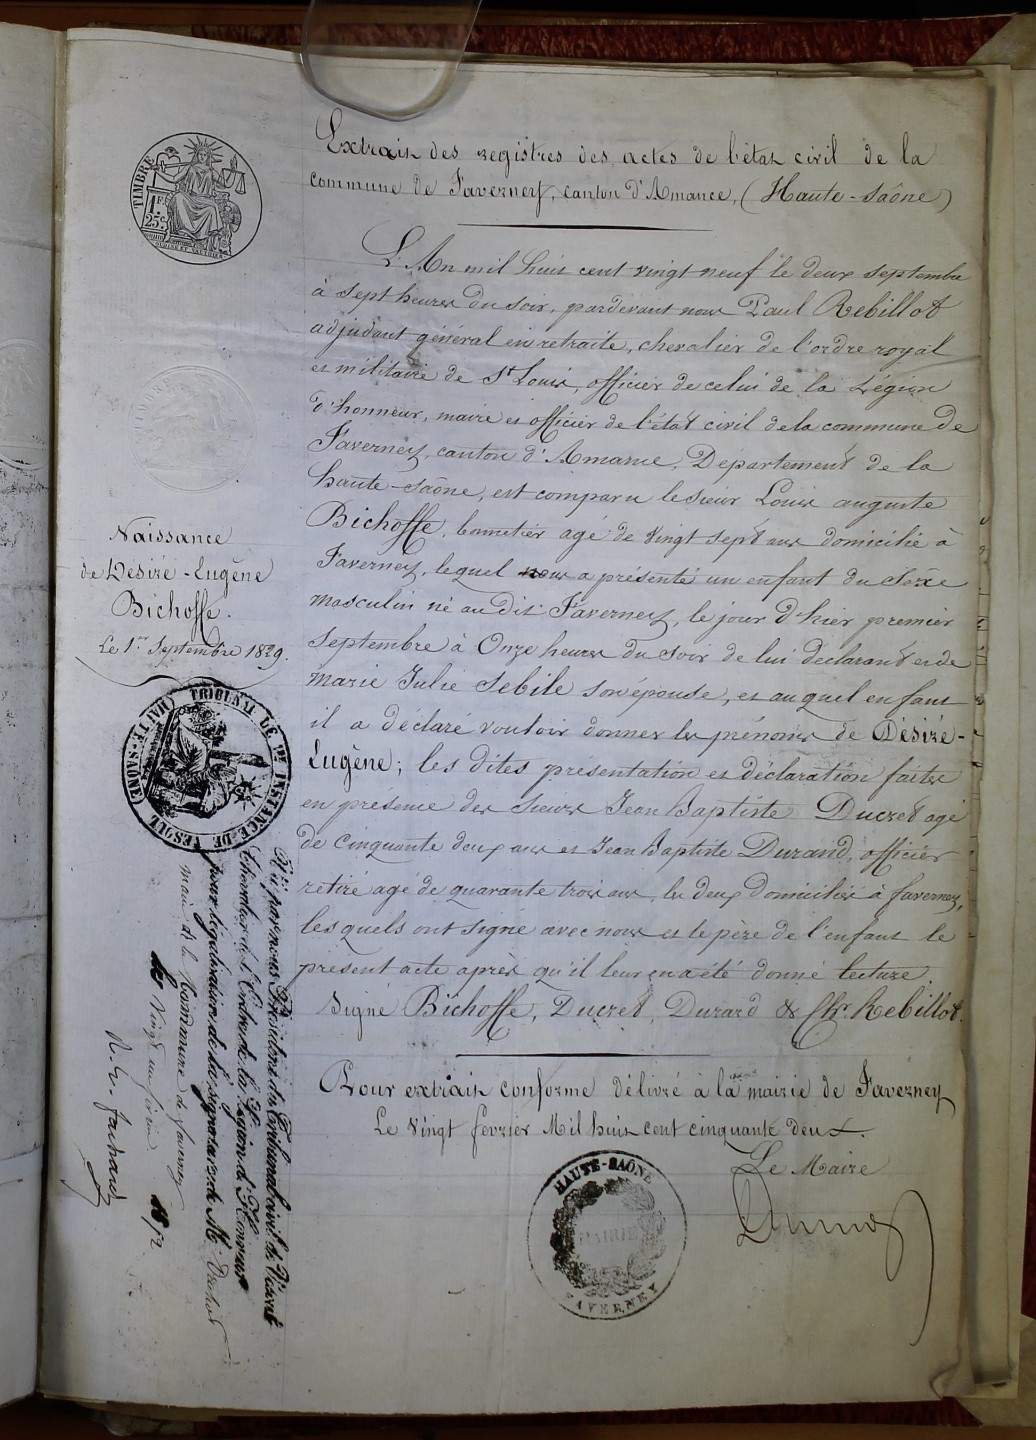 TIMBRE
1 F.
25 C.
Extrait des registres des actes de l'état civil de la
commune de Faverney, canton d'Amance, (Haute-Saône)
L'An mil huit cent vingt neuf le deux septembre
à sept heures du soir, pardevant nous Paul Rebillot
adjudant général en retraite, chevalier de l'ordre royal
et militaire de St Louis, officier de celui de la Légion
d'honneur, maire et officier de l'état civil de la commune de
Faverney, canton d'Amance, Département de la
haute-Saône, est comparu le sieur Louis auguste
Bichoffe, bonnetier agé de vingt sept ans domicilié à
Faverney, lequel nous a présenté un enfant du sexe
masculin né au dit Faverney, le jour d'hier premier
septembre à Onze heures du soir de lui déclarant et de
Marie Julie Sebile son épouse, et auquel enfant
il a déclaré vouloir donner les prénoms de Désiré-
Eugène; les dites présentation et déclaration faites
en présence des sieurs Jean Baptiste Ducret agé
de cinquante deux ans et Jean Baptiste Durand, officier
retiré agé de quarante trois ans, les deux domiciliés à faverney,
lesquels ont signé avec nous et le père de l'enfant le
présent acte après qu'il leur en a été donné lecture.
Signé Bichoffe, Ducret, Durand & Chr. Rebillot.
Pour extrait conforme délivré à la mairie de Faverney
Le vingt fevrier Mil huit cent cinquante deux.
Le Maire
HAUTE-SAÔNE
MAIRIE
FAVERNEY
Naissance
de Désiré-Eugène
Bichoffe.
Le 1er Septembre 1829.
TRIBUNAL DE 1RE INSTANCE DE VESOUL
(HAUTE-SAONE)
Vu par nous Président du Tribunal civil de Vesoul
Chevalier de l'Ordre de la Légion d'Honneur
pour légalisation de la signature de Mr
maire de la Commune de faverney
le Vingt un février 1852